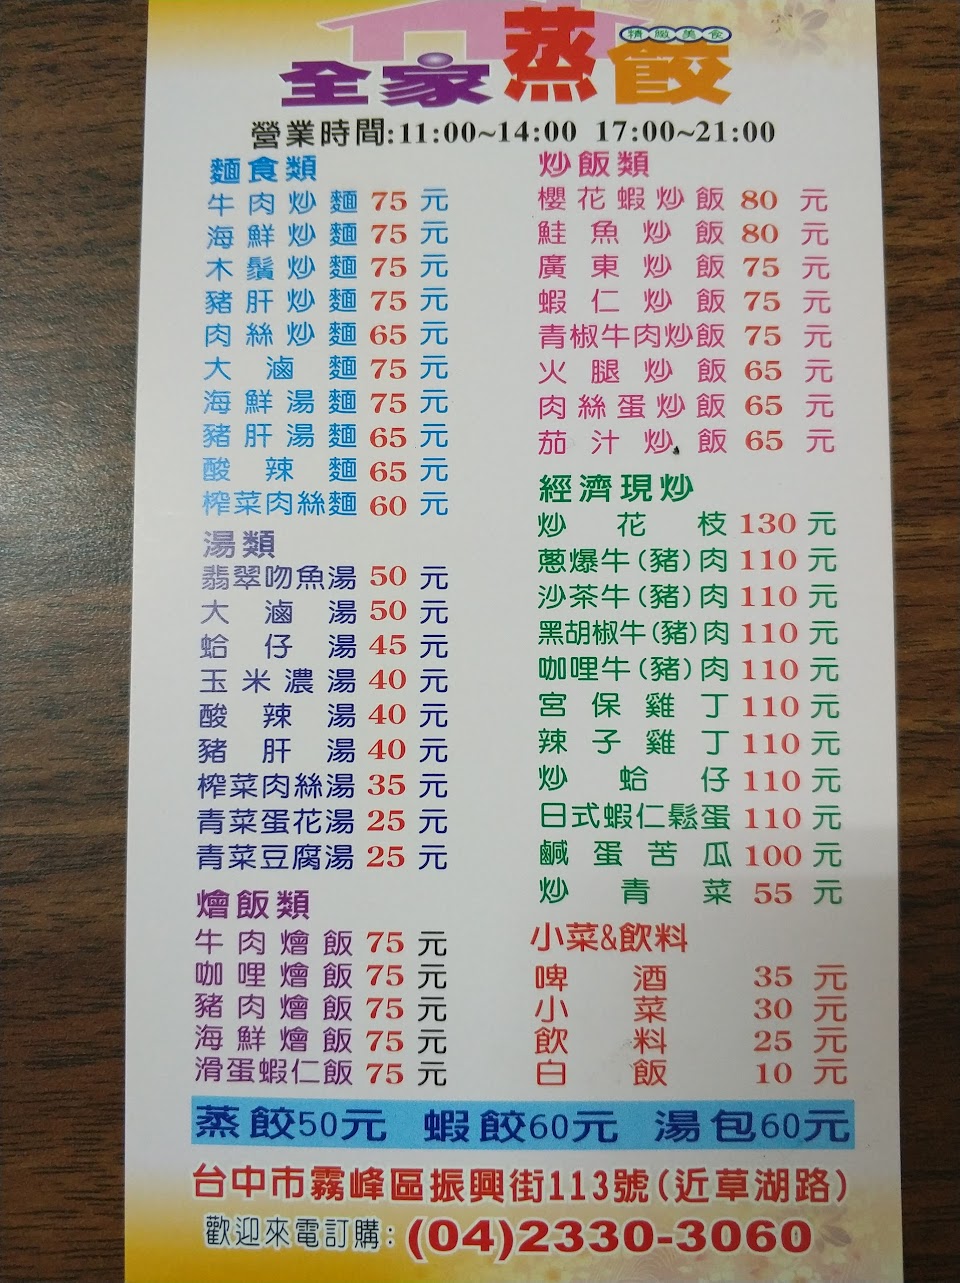 精緻美食
全家蒸餃
營業時間:11:00~14:00 17:00~21:00
麵食類
牛肉炒麵 75 元
海鮮炒麵 75 元
木鬚炒麵 75 元
豬肝炒麵 75 元
肉絲炒麵 65 元
大滷麵 75 元
海鮮湯麵 75 元
豬肝湯麵 65 元
酸辣麵 65 元
榨菜肉絲麵 60 元
湯類
翡翠吻魚湯 50 元
大滷湯 50 元
蛤仔湯 45 元
玉米濃湯 40 元
酸辣湯 40 元
豬肝湯 40 元
榨菜肉絲湯 35 元
青菜蛋花湯 25 元
青菜豆腐湯 25 元
燴飯類
牛肉燴飯 75 元
咖哩燴飯 75 元
豬肉燴飯 75 元
海鮮燴飯 75 元
滑蛋蝦仁飯 75 元
炒飯類
櫻花蝦炒飯 80 元
鮭魚炒飯 80 元
廣東炒飯 75 元
蝦仁炒飯 75 元
青椒牛肉炒飯 75 元
火腿炒飯 65 元
肉絲蛋炒飯 65 元
茄汁炒飯 65 元
經濟現炒
炒花枝 130 元
蔥爆牛(豬)肉 110 元
沙茶牛(豬)肉 110 元
黑胡椒牛(豬)肉 110 元
咖哩牛(豬)肉 110 元
宮保雞丁 110 元
辣子雞丁 110 元
炒蛤仔 110 元
日式蝦仁鬆蛋 110 元
鹹蛋苦瓜 100 元
炒青菜 55 元
小菜&飲料
啤酒 35 元
小菜 30 元
飲料 25 元
白飯 10 元
蒸餃50元 蝦餃60元 湯包60元
台中市霧峰區振興街113號(近草湖路)
歡迎來電訂購:(04)2330-3060